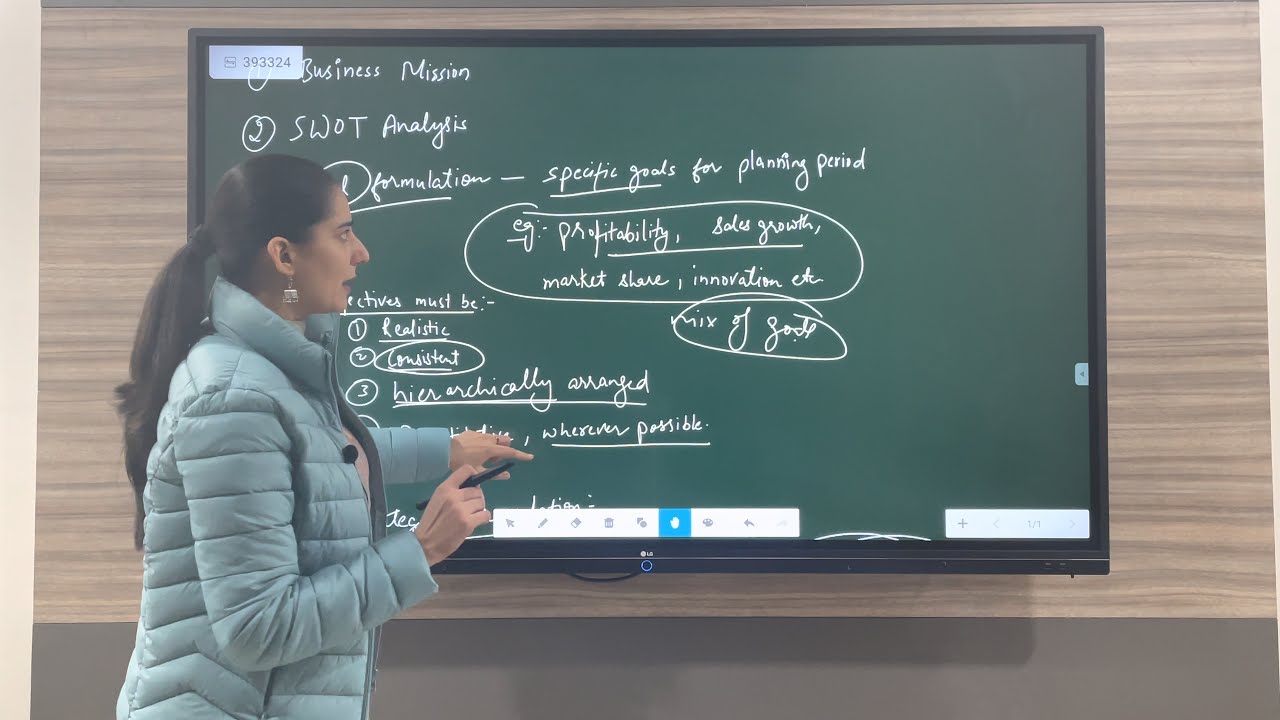 393324
1) Business Mission
② SWOT Analysis
formulation — specific goals for planning period
eg:- profitability, sales growth,
market share, innovation etc
mix of goals
ectives must be:-
① Realistic
② Consistent
③ hierarchically arranged
, wherever possible.
1/1
LG